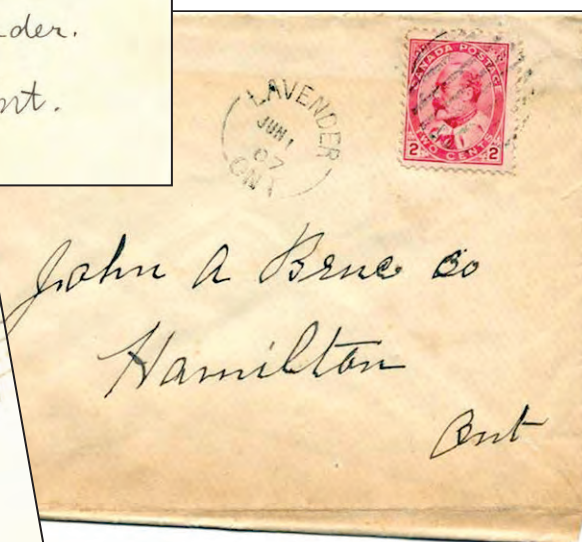 der.
nt.
LAVENDER
JUN 1
07
ONT
CANADA POSTAGE
2 TWO CENTS 2
John A Bruce Co
Hamilton
Ont